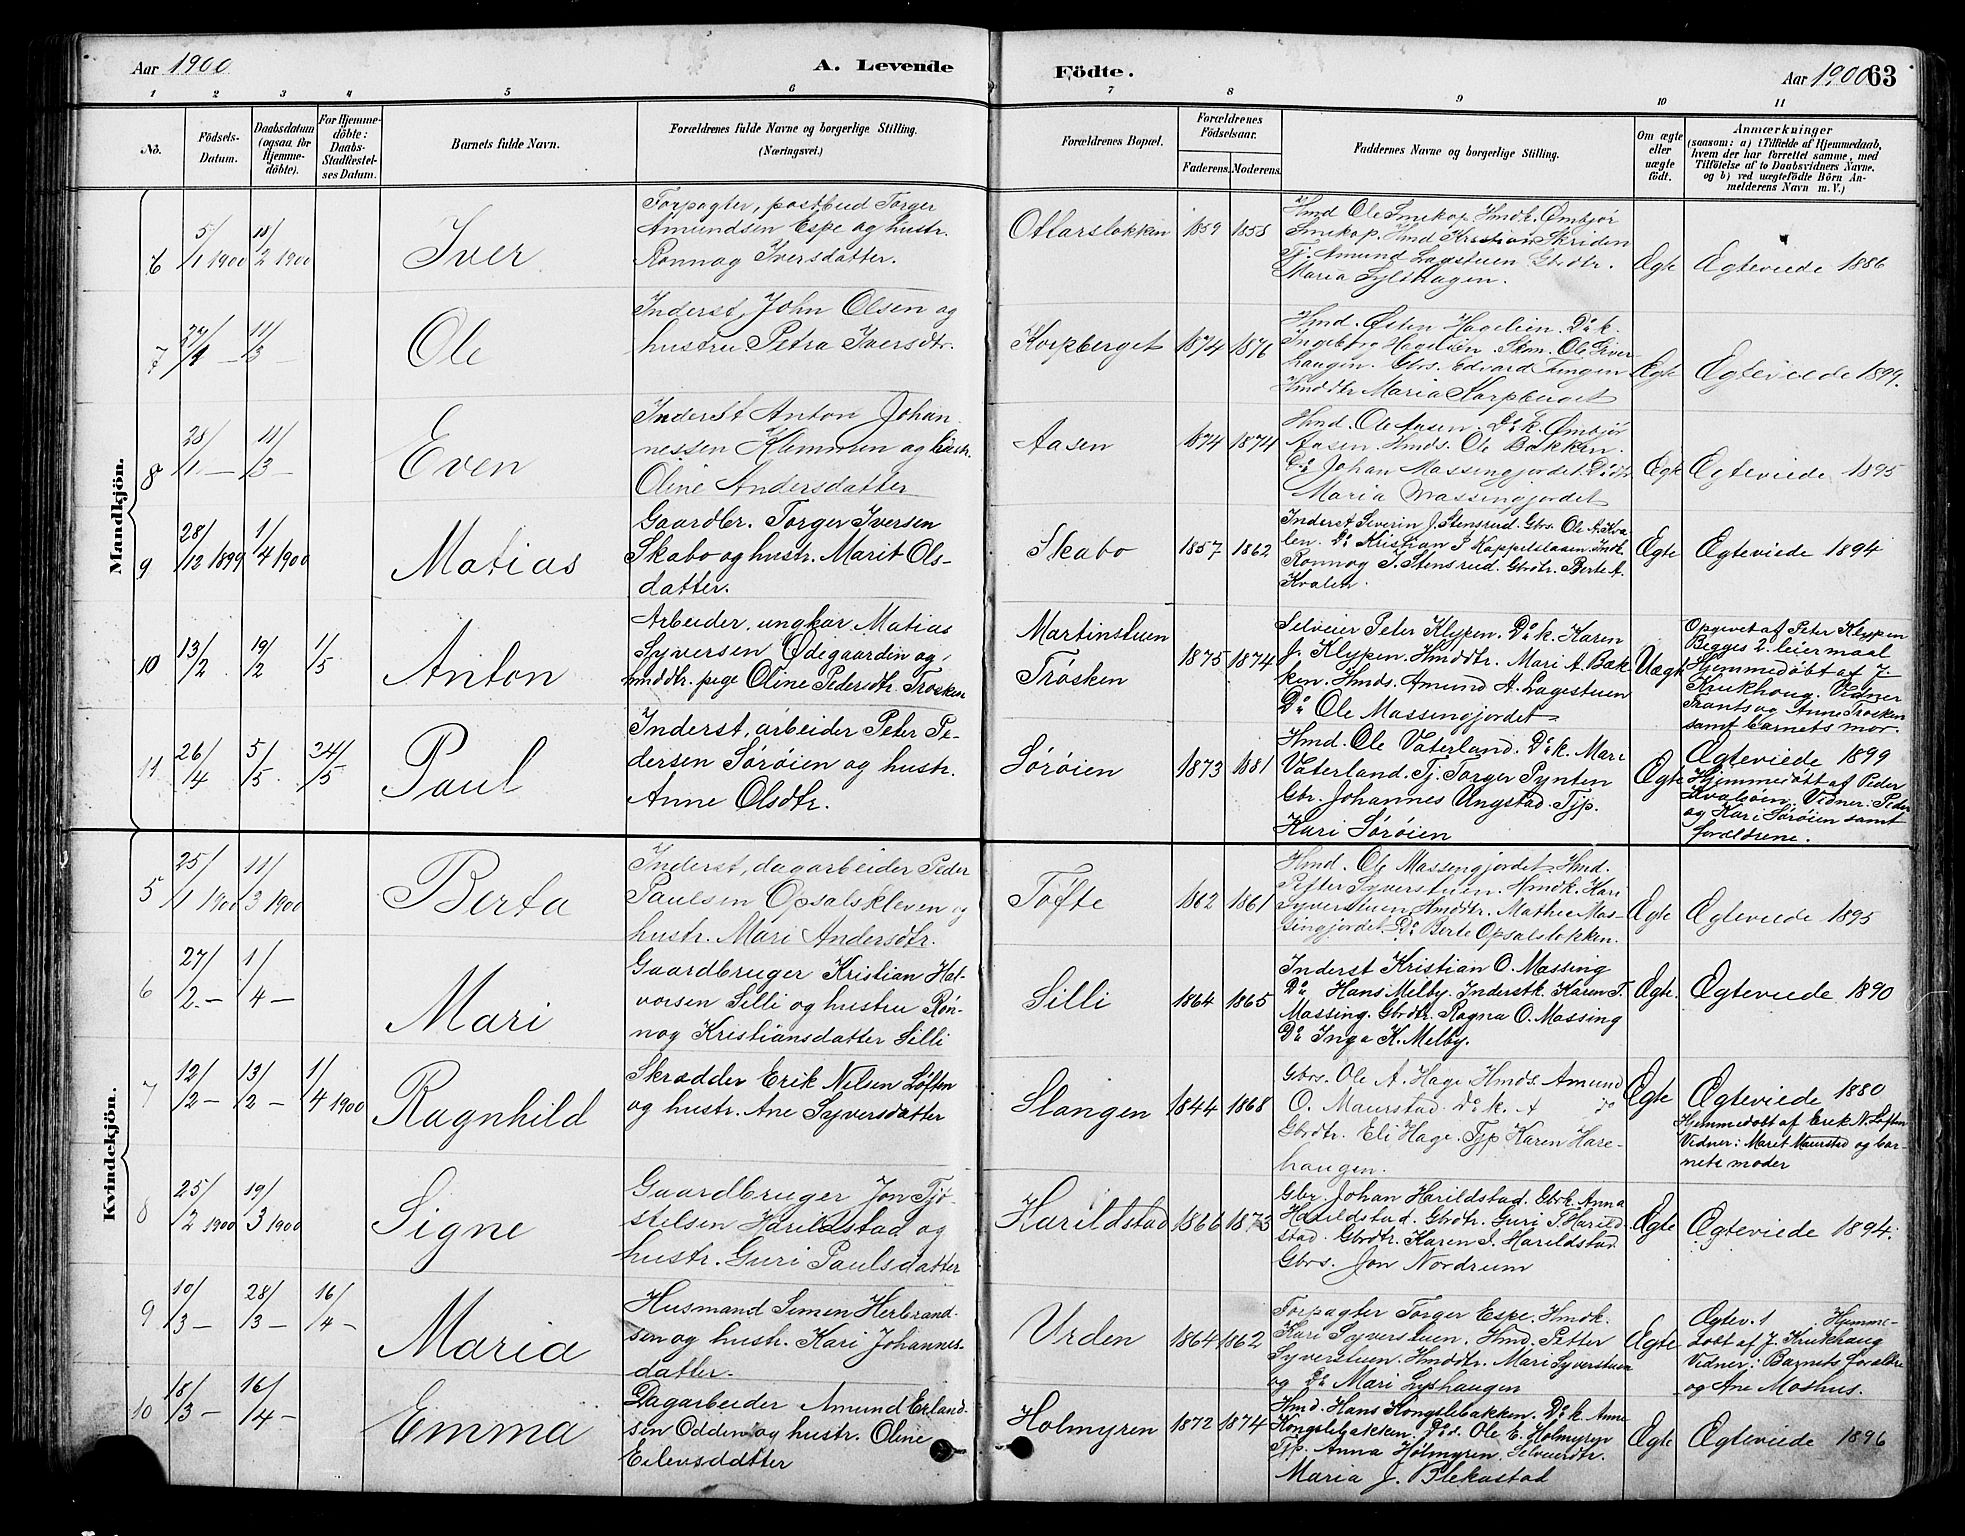 Aar 1900
A. Levende Födte.
Aar 1900 63
1 2 3 4 5 6 7 8 9 10 11
No.
Födsels-Datum.
Daabsdatum (ogsaa for Hjemme-döbte).
For Hjemme-döbte: Daabs-Stadfæstel-ses Datum.
Barnets fulde Navn.
Forældrenes fulde Navne og borgerlige Stilling. (Næringsvei.)
Forældrenes Bopæl.
Forældrenes Födselsaar.
Faderens. Moderens.
Faddernes Navne og borgerlige Stilling.
Om ægte eller uægte födt.
Anmærkninger
(saasom: a) i Tilfælde af Hjemmedaab,
hvem der har forrettet samme, med
Tilföielse af to Daabsvidners Navne.
og b) ved uægtefödte Börn An-
melderens Navn m. V.)
Mandkjön.
6 5/1 1900 18/2 1900 Iver
Forpagter, postbud Torger
Amundsen Espe og hustr.
Rønnog Iversdatter.
Ottarsløkken 1859 1858
Hmd Ole Smekop Hmdk. Ømbjør
Smekop. Hmd Kristian Skriden
Tj. Amund Lagestuen Gbrdtr.
Maria Sylthagen.
Ægte Ægteviede 1886
7 27/1 — 11/3 Ole
Inderst, John Olsen og
hustru Petra Iversdtr.
Korpberget 1874 1876
Hmd. Østen Hageleien. Do k.
Ingeborg Hageleien. Skm. Ole Siver
haugen. Gbrs. Edvard Tungen
Hmddtr Maria Korpberget
Ægte Ægteviede 1899.
8 28/1 — 11/3 — Even
Inderst Anton Johan-
nessen Klemmen og hustr.
Oline Andersdatter
Aasen 1874 1874
Hmd. Ole Aasen. Do k. Ømbjør
Aasen. Hmds. Ole Bakken.
Do Johan Massingjordet. Do dtr
Maria Massingjordet
Ægte Ægteviede 1895
9 28/12 1899 1/4 1900 Matias
Gaardbr. Torger Iversen
Skabo og hustr. Marit Ols-
datter.
Skabo 1857 1862
Inderst Severin J. Stensrud. Gbrs. Ole A. Kva-
len. Do Kristian J Kappelslaaen. Indk.
Rønnog J. Stensrud. Gbrdtr. Berte A.
Kvalen.
Ægte Ægteviede 1894
10 13/2 19/2 1/5 Anton
Arbeider, ungkar Matias
Syversen Ødegaarden og
hmddtr. pige Oline Pedersdtr. Trøsken
Martinstuen
Trøsken
1875 1874
Selveier Peter Klypen. Do k. Karen
J. Klypen. Hmddtr. Mari A. Bak
ken. Hmds. Amund A. Lagestuen
Do Ole Massingjordet
Uægte
Opgivet af Peter Klypen
Begges 2. leiermaal
Hjemmedøbt af J.
Krukhoug. Vidner
Frants og Anne Trøsken
samt barnets mor.
11 26/4 5/5 24/5 Paul
Inderst, arbeider Peter Pe-
dersen Sørøien og hustr.
Anne Olsdtr.
Sørøien 1873 1881
Hmd. Ole Vaterland. Do k. Mari
Vaterland. Tj. Torger Pynten
Gbr. Johannes Ungstad. Tjp.
Kari Sørøien
Ægte
Ægteviede 1899
Hjemmedøbt af Peder
Kvaløien. Vidner: Peder
og Kari Sørøien samt
forældrene.
Kvindekjön.
5 25/1 1900 11/3 1900 Berta
Inderst, dagarbeider Peder
Paulsen Opsalskleven og
hustr. Mari Andersdtr.
Tøfte 1862 1861
Hmd. Ole Massengjordet Hmd.
Petter Syverstuen. Hmdk. Kari
Syverstuen Hmddtr. Mathea Mas-
singjordet. Do Berte Opsalsløkken.
Ægte Ægteviede 1895
6 27/2 — 1/4 — Mari
Gaardbruger Kristian Hal-
vorsen Silli og hustru Røn-
nog Kristiansdatter Silli
Silli 1864 1865
Inderst Kristian O. Massing
Do Hans Melby. Inderstk. Karen T.
Massing. Gbrdtr. Ragna O. Massing
Do Inga K. Melby.
Ægte. Ægteviede 1890
7 12/2 — 13/2 — 1/4 1900 Ragnhild
Skrædder Erik Nelsen Løften
og hustr. Ane Syversdatter
Slangen 1844 1868
Gbrs. Ole A. Hage Hmds. Amund
O. Maurstad. Do k. A do
Gbrdtr. Eli Hage. Tjp Karen Hare-
haugen.
Ægte
Ægteviede 1880
Hjemmedøbt af Erik N. Løften
Vidner: Marit Maurstad og bar-
nets moder
8 25/2 1900 19/3 1900 Signe
Gaardbruger Jon Tjø-
stelsen Harildstad og
hustr. Guri Paulsdatter
Harildstad 1866 1873
Gbr. Johan Harildstad. Gbrk. Anna
Harildstad. Gbrdtr. Guri J. Harild
stad. Gbrdtr. Karen J. Harildstad
Gbrs. Jon Nordrum
Ægte Ægteviede 1894.
9 10/3 — 28/3 — 16/4 — Maria
Husmand Simen Herbrand-
sen og hustr. Kari Johannes-
datter.
Urden 1864 1862
Forpagter Torger Espe. Hmdk.
Kari Syverstuen. Hmd. Petter
Syverstuen. Hmddtr. Mari Syverstuen
og Do Mari Lyshaugen
Ægte
Ægtev. 1 Hjemme-
døbt af J. Krukhaug
Vidner: Barnets forældre
og Ane Moshus.
10 18/3 — 16/4 — Emma
Dagarbeider Amund Erland-
sen Odden og hustr. Oline
Eilevsdatter
Holmyren 1872 1874
Hmd. Hans Kongslebakken. Do k. Anne
Kongslebakken. Do s. Ole E. Holmyren
Tjp. Anna Holmyren. Selveierdtr.
Maria J. Flekøstad
Ægte Ægteviede 1896